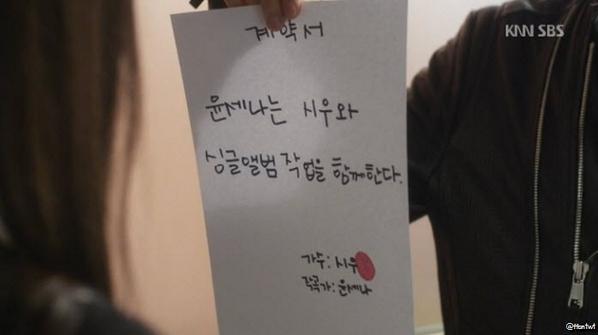 KNN SBS
계약서
윤세나는 시우와
싱글앨범 작업을 함께한다.
가수: 시우
작곡가: 윤세나